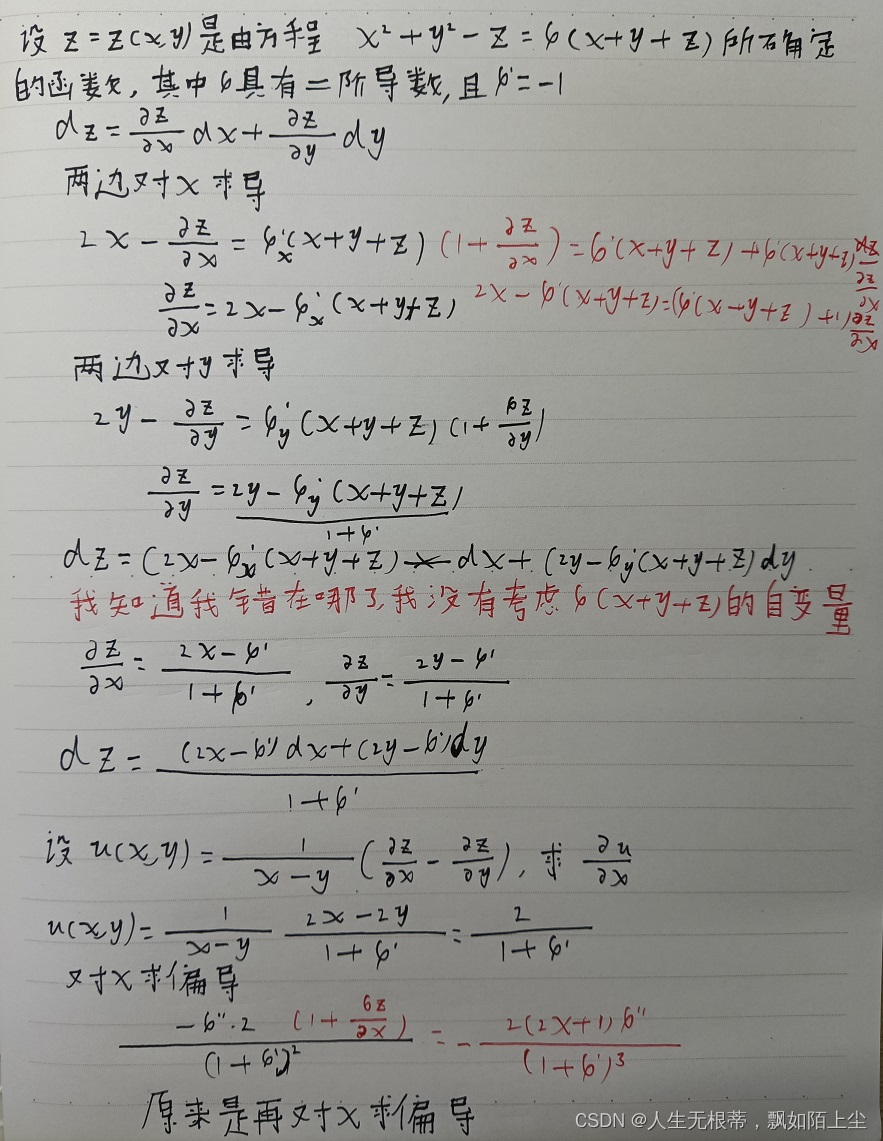 设 z=z(x,y)是由方程 x²+y²-z=φ(x+y+z)所确定
的函数, 其中φ具有二阶导数,且φ'=-1
dz=∂z/∂x dx+∂z/∂y dy
两边对x求导
2x-∂z/∂x=φ'ₓ(x+y+z)(1+∂z/∂x)=φ'(x+y+z)+φ'(x+y+z)∂z/∂x
∂z/∂x=2x-φ'ₓ(x+y+z) 2x-φ'(x+y+z)=(φ'(x+y+z)+1)∂z/∂x
两边对y求导
2y-∂z/∂y=φ'y(x+y+z)(1+∂z/∂y)
∂z/∂y=2y-φ'y(x+y+z)/1+φ'
dz=(2x-φ'ₓ(x+y+z)dx+(2y-φ'y(x+y+z)dy
我知道我错在哪了,我没有考虑φ(x+y+z)的自变量
∂z/∂x=2x-φ'/1+φ', ∂z/∂y=2y-φ'/1+φ'
dz=(2x-φ')dx+(2y-φ')dy/1+φ'
设u(x,y)=1/x-y(∂z/∂x-∂z/∂y), 求∂u/∂x
u(x,y)=1/x-y 2x-2y/1+φ'=2/1+φ'
对x求偏导
-φ''·2(1+∂z/∂x)/(1+φ')²=-2(2x+1)φ''/(1+φ')³
原来是再对x求偏导
CSDN @人生无根蒂，飘如陌上尘